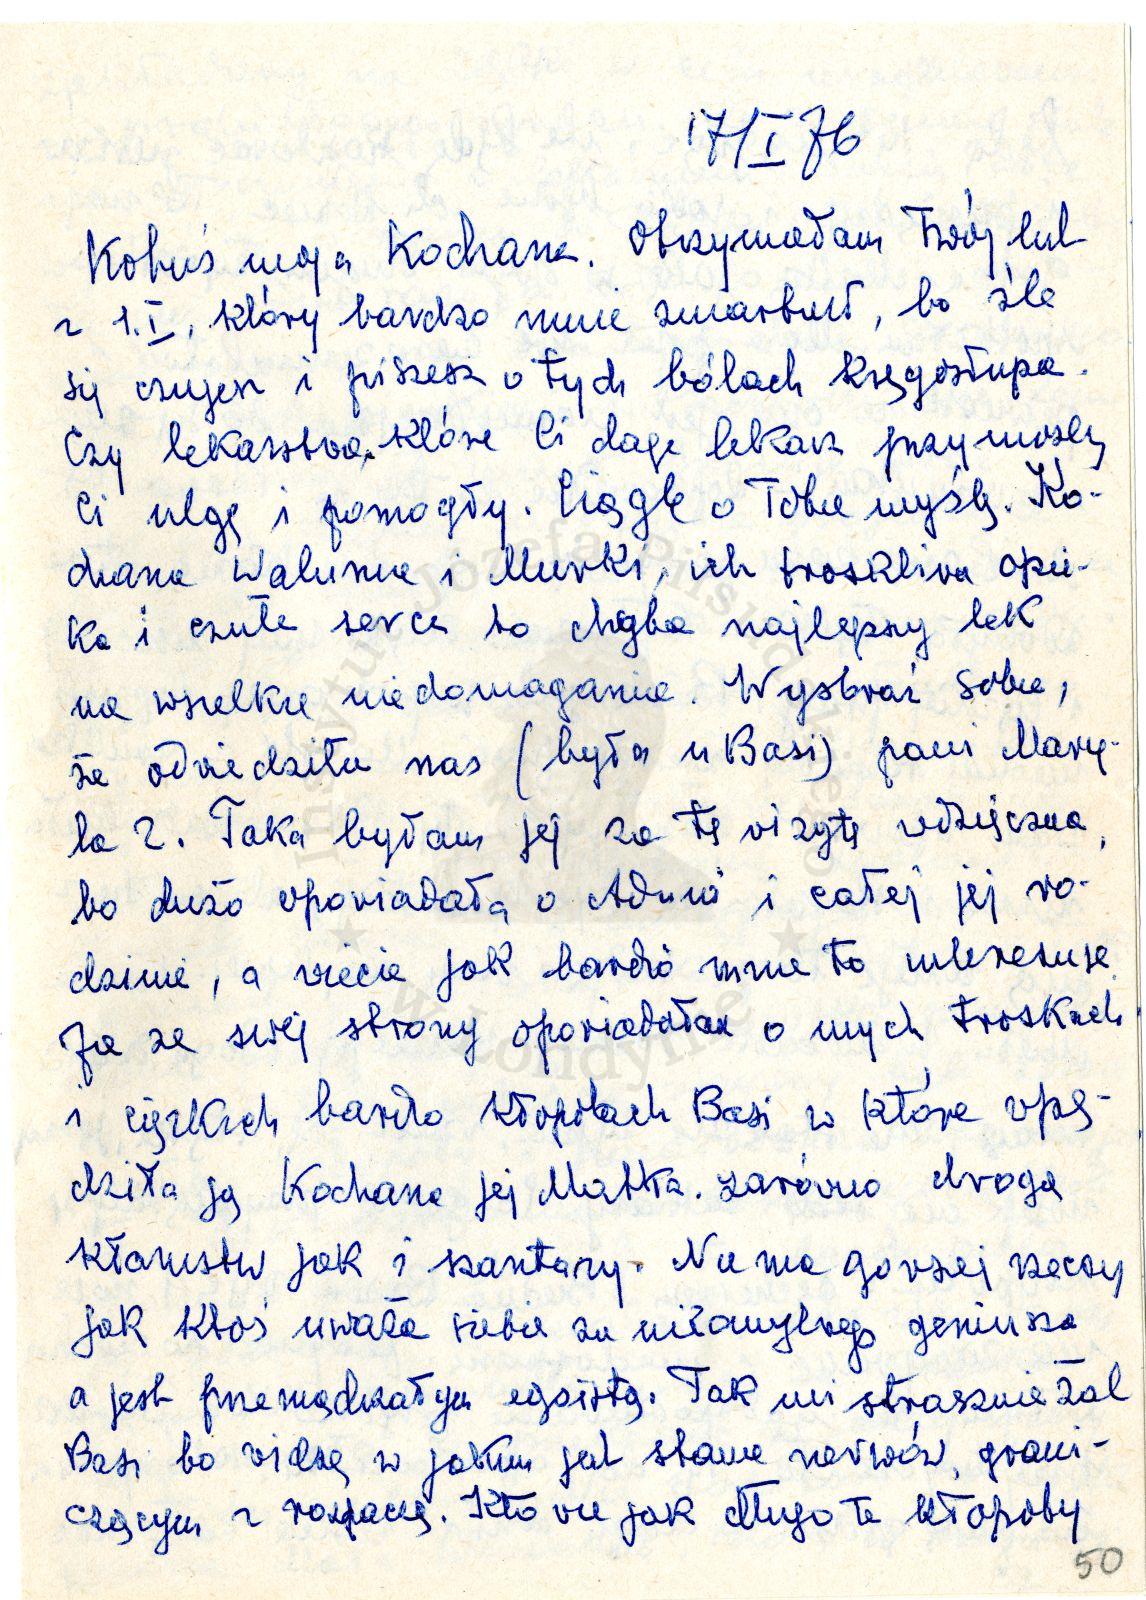 17/I 76
Kobuś moja Kochana. Otrzymałam Twój list
z 1.I, który bardzo mnie zmartwił, bo źle
się czujesz i piszesz o tych bólach kręgosłupa.
Czy lekarstwa, które Ci daje lekarz przyniosły
Ci ulgę i pomogły. Ciągle o Tobie myślę. Ko-
chana Walunia i Murki, ich troskliwa opie-
ka i czułe serca to chyba najlepszy lek
na wszelkie niedomagania. Wyobraź sobie,
że odwiedziła nas (była u Basi) pani Mary-
la Z. Taka byłam jej za tę wizytę wdzięczna,
bo dużo opowiadała o Aduni i całej jej ro-
dzinie, a wiecie jak bardzo mnie to interesuje.
Ja ze swej strony opowiadałam o mych troskach
i ciężkich bardzo kłopotach Basi w które wpę-
dziła ją Kochana jej Matka. zarówno drogą
kłamstw jak i szantaży. Nie ma gorszej rzeczy
jak ktoś uważa siebie za nieomylnego geniusza
a jest przemądrzałym egoistą. Tak mi strasznie żal
Basi bo widzę w jakim jest stanie nerwów, grani-
czącym z rozpaczą. Kto wie jak długo te kłopoty
50
Instytut Józefa Piłsudskiego
w Londynie